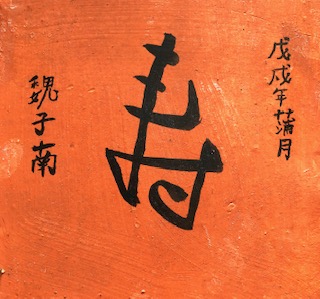 戊戌年蒲月
寿
魏子南